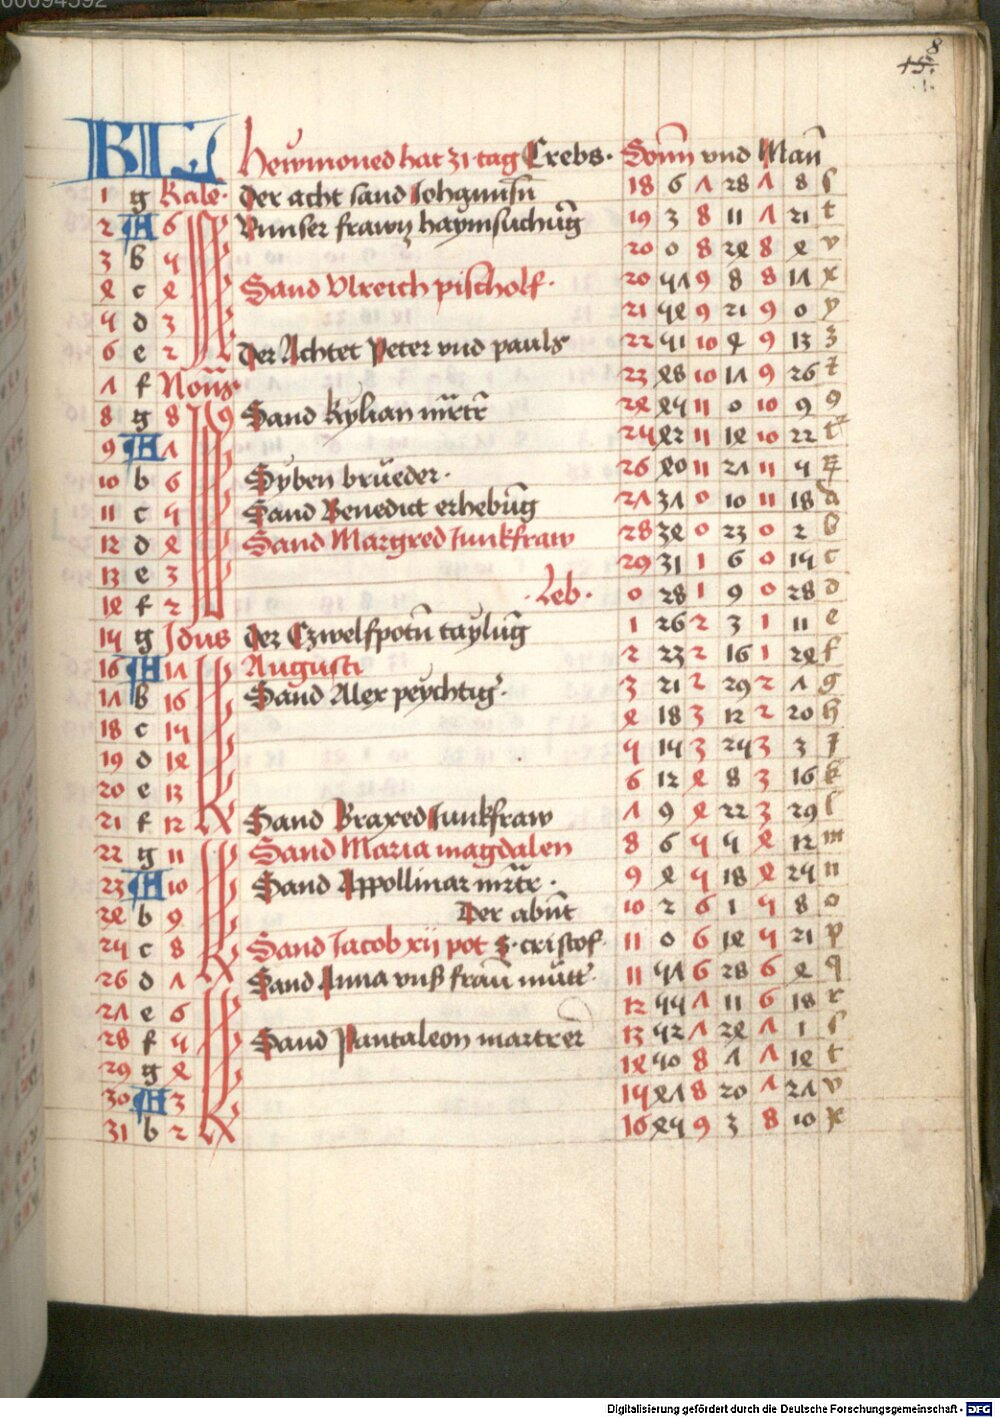 8
15
KL Hewmoned hat 31 tag Crebs. Sonn vnd Man
1 g Kale. Der acht sand Johannsn 18 6 7 28 7 8 s
2 A 6 Vnnser frawn haymsuchung 19 3 8 11 7 21 t
3 b 5 20 0 8 24 8 4 v
4 c 4 Sand Vlreich pischolf. 20 57 9 8 8 17 x
5 d 3 21 54 9 21 9 0 y
6 e 2 Der Achtet Peter vnd pauls 22 51 10 4 9 13 z
7 f Nonas 23 48 10 17 9 26 t
8 g 8 Sand Kylian mrtr 24 45 11 0 10 9 9
9 A 7 25 42 11 14 10 22 t
10 b 6 Syben brueder. 26 40 11 27 11 5
11 c 5 Sand Benedict erhebung 27 37 0 10 11 18 a
12 d 4 Sand Margred Junkfraw 28 34 0 23 0 2 b
13 e 3 29 31 1 6 0 15 c
14 f 2 . Leb . 0 28 1 9 0 28 d
15 g Jdus Der Czwelfpotn taylung 1 26 2 3 1 11 e
16 A 17 Augusti 2 23 2 16 1 24 f
17 b 16 Sand Alex peychtig 3 21 2 29 2 7 g
18 c 15 4 18 3 12 2 20 h
19 d 14 5 15 3 25 3 3 j
20 e 13 6 12 4 8 3 16 k
21 f 12 Sand Braxed Junkfraw 7 9 4 22 3 29 l
22 g 11 Sand Maria magdalen 8 6 5 5 4 12 m
23 A 10 Sand Appollinar mrtr . 9 4 5 18 4 25 n
24 b 9 Der abnt 10 2 6 1 5 8 o
25 c 8 Sand Jacob xij pot S. cristof 11 0 6 14 5 21 p
26 d 7 Sand Anna vnß fraun mutt 11 57 6 28 6 4 q
27 e 6 12 55 7 11 6 18 r
28 f 5 Sand Pantaleon martrer 13 52 7 24 7 1 s
29 g 4 14 50 8 7 7 14 t
30 A 3 15 47 8 20 7 27 v
31 b 2 16 45 9 3 8 10 x
Digitalisierung gefördert durch die Deutsche Forschungsgemeinschaft - DFG